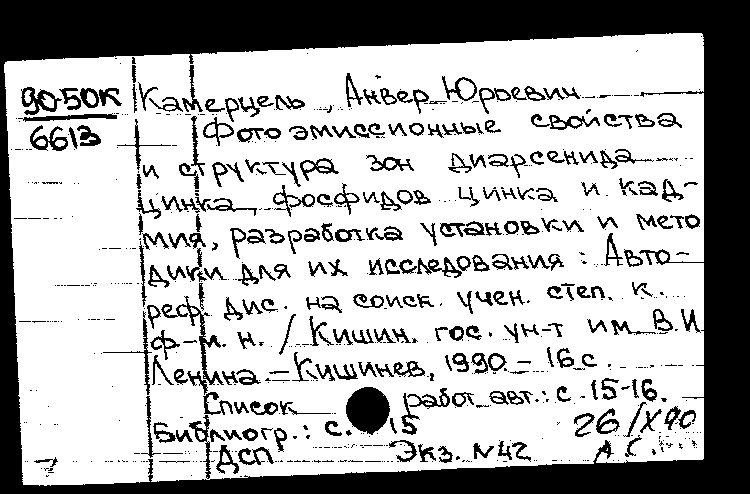 90-50К
6613
Камерцель, Анвер Юрьевич
Фотоэмиссионные свойства
и структура зон диарсенида
цинка, фосфидов цинка и кад-
мия, разработка установки и мето
дики для их исследования: Авто-
реф. дис. на соиск. учен. степ. к.
ф.-м. н. / Кишин. гос. ун-т им В.И
Ленина. - Кишинев, 1990 - 16 с.
Список работ авт.: с. 15-16.
Библиогр.: с. 15
26/X 90
ДСП Экз. N42